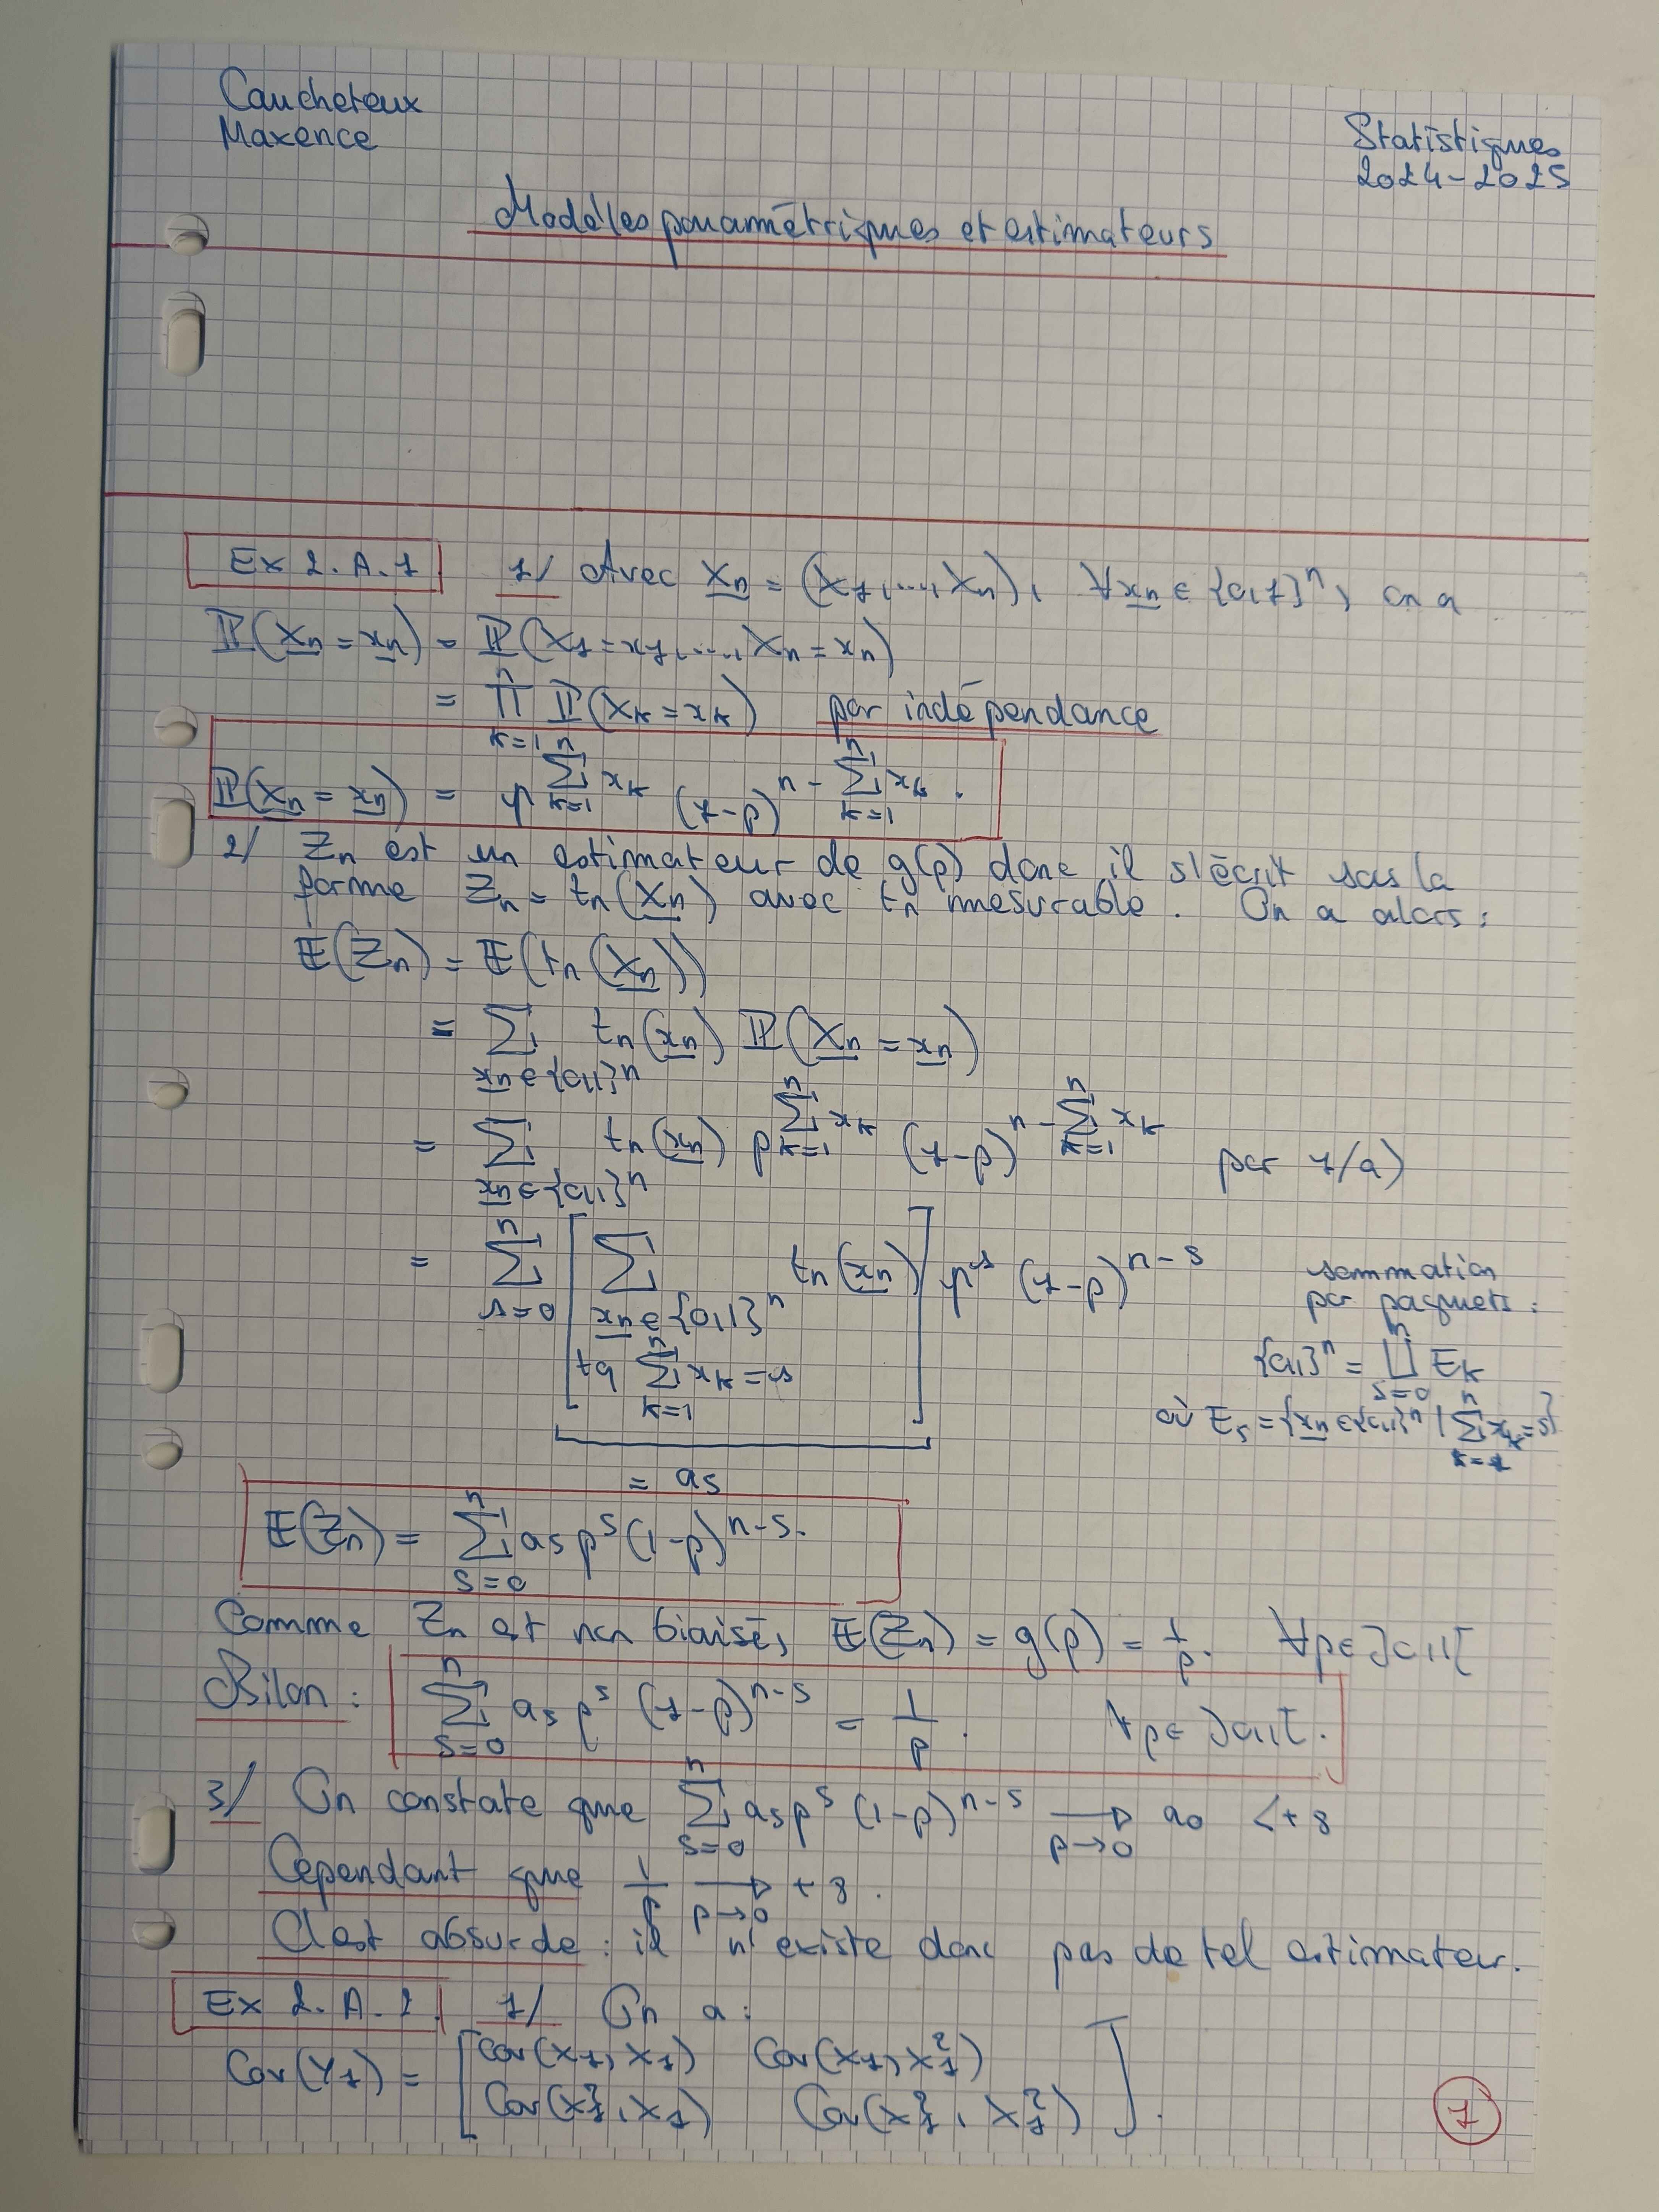 Caucheteux
Maxence
Statistiques
2024-2025
Modèles paramétriques et estimateurs
Ex 2.A.1 1/ Avec X̲n = (X1,...,Xn), ∀x̲n ∈ {0,1}^n, on a
ℙ(X̲n = x̲n) = ℙ(X1=x1,...,Xn=xn)
= ∏_{k=1}^{n} ℙ(Xk=xk) par indépendance
ℙ(X̲n = x̲n) = p^{∑_{k=1}^{n} xk} (1-p)^{n - ∑_{k=1}^{n} xk}.
2/ Zn est un estimateur de g(p) donc il s'écrit sous la
forme Zn = tn(X̲n) avec tn mesurable. On a alors :
𝔼(Zn) = 𝔼(tn(X̲n))
= ∑_{x̲n ∈ {0,1}^n} tn(x̲n) ℙ(X̲n = x̲n)
= ∑_{x̲n ∈ {0,1}^n} tn(x̲n) p^{∑_{k=1}^{n} xk} (1-p)^{n - ∑_{k=1}^{n} xk} par 1/a)
= ∑_{s=0}^{n} [ ∑_{x̲n ∈ {0,1}^n tq ∑_{k=1}^{n} xk = s} tn(x̲n) ] p^s (1-p)^{n-s} sommation
par paquets.
{0,1}^n = ⨆_{s=0}^{n} Ek
où Es = {x̲n ∈ {0,1}^n | ∑_{k=1}^{n} xk = s}
= as
𝔼(Zn) = ∑_{s=0}^{n} as p^s (1-p)^{n-s}.
Comme Zn est non biaisé, 𝔼(Zn) = g(p) = 1/p. ∀p∈]0,1[
Bilan : ∑_{s=0}^{n} as p^s (1-p)^{n-s} = 1/p. ∀p∈]0,1[.
3/ On constate que ∑_{s=0}^{n} as p^s (1-p)^{n-s} →_{p→0} a0 < +∞
Cependant que 1/p →_{p→0} +∞.
C'est absurde : il n'existe donc pas de tel estimateur.
Ex 2.A.2. 1/ On a :
Cov(Y1) = [ Cov(X1, X1) Cov(X1, X1²)
Cov(X1², X1) Cov(X1², X1²) ].
1